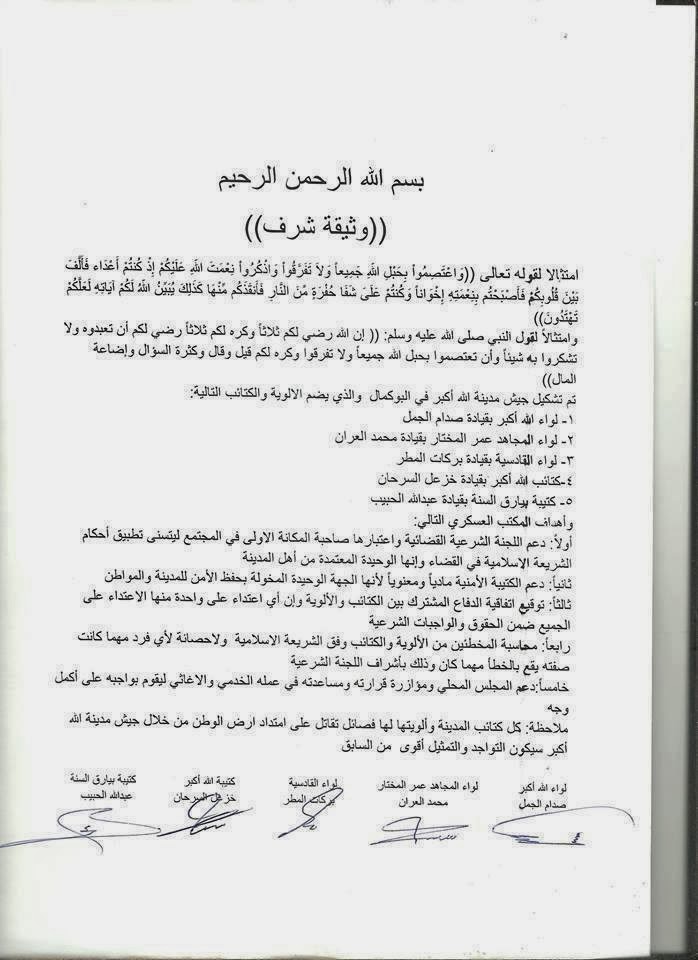 بسم الله الرحمن الرحيم
((وثيقة شرف))
امتثالا لقوله تعالى ((وَاعْتَصِمُواْ بِحَبْلِ اللّهِ جَمِيعاً وَلاَ تَفَرَّقُواْ وَاذْكُرُواْ نِعْمَتَ اللّهِ عَلَيْكُمْ إِذْ كُنتُمْ أَعْدَاء فَأَلَّفَ
بَيْنَ قُلُوبِكُمْ فَأَصْبَحْتُم بِنِعْمَتِهِ إِخْوَاناً وَكُنتُمْ عَلَىَ شَفَا حُفْرَةٍ مِّنَ النَّارِ فَأَنقَذَكُم مِّنْهَا كَذَلِكَ يُبَيِّنُ اللّهُ لَكُمْ آيَاتِهِ لَعَلَّكُمْ
تَهْتَدُونَ))
وامتثالاً لقول النبي صلى الله عليه وسلم: (( إن الله رضي لكم ثلاثاً وكره لكم ثلاثاً رضي لكم أن تعبدوه ولا
تشكروا به شيئاً وأن تعتصموا بحبل الله جميعاً ولا تفرقوا وكره لكم قيل وقال وكثرة السؤال وإضاعة
المال))
تم تشكيل جيش مدينة الله أكبر في البوكمال والذي يضم الالوية والكتائب التالية:
١- لواء الله أكبر بقيادة صدام الجمل
٢- لواء المجاهد عمر المختار بقيادة محمد العران
٣- لواء القادسية بقيادة بركات المطر
٤-كتائب الله أكبر بقيادة خزعل السرحان
٥- كتيبة بيارق السنة بقيادة عبدالله الحبيب
وأهداف المكتب العسكري التالي:
أولاً: دعم اللجنة الشرعية القضائية واعتبارها صاحبة المكانة الاولى في المجتمع ليتسنى تطبيق أحكام
الشريعة الاسلامية في القضاء وإنها الوحيدة المعتمدة من أهل المدينة
ثانياً: دعم الكتيبة الأمنية مادياً ومعنوياً لأنها الجهة الوحيدة المخولة بحفظ الأمن للمدينة والمواطن
ثالثاً: توقيع اتفاقية الدفاع المشترك بين الكتائب والألوية وإن أي اعتداء على واحدة منها الاعتداء على
الجميع ضمن الحقوق والواجبات الشرعية
رابعاً: محاسبة المخطئين من الألوية والكتائب وفق الشريعة الاسلامية ولاحصانة لأي فرد مهما كانت
صفته يقع بالخطأ مهما كان وذلك بأشراف اللجنة الشرعية
خامساً:دعم المجلس المحلي ومؤازرة قرارته ومساعدته في عمله الخدمي والاغاثي ليقوم بواجبه على أكمل
وجه
ملاحظة: كل كتائب المدينة وألويتها لها فصائل تقاتل على امتداد ارض الوطن من خلال جيش مدينة الله
أكبر سيكون التواجد والتمثيل أقوى من السابق
لواء الله أكبر لواء المجاهد عمر المختار لواء القادسية كتيبة الله أكبر كتيبة بيارق السنة
صدام الجمل محمد العران بركات المطر خزعل السرحان عبدالله الحبيب